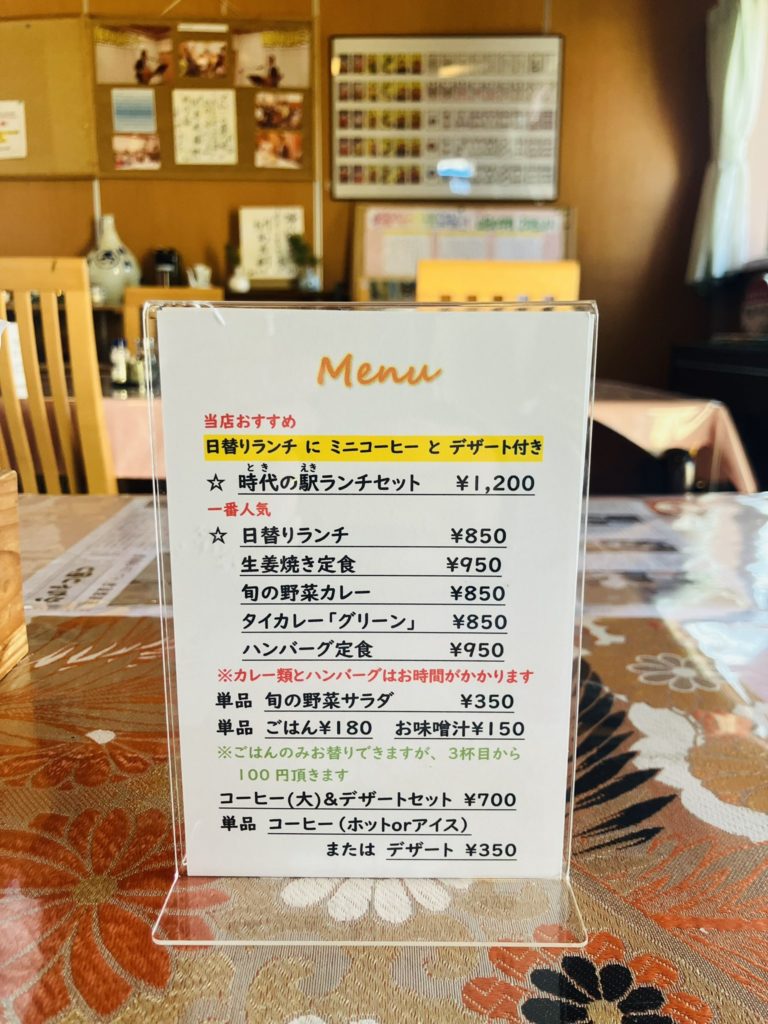 Menu
当店おすすめ
日替りランチ に ミニコーヒー と デザート付き
とき えき
☆ 時代の駅ランチセット ¥1,200
一番人気
☆ 日替りランチ ¥850
生姜焼き定食 ¥950
旬の野菜カレー ¥850
タイカレー「グリーン」 ¥850
ハンバーグ定食 ¥950
※カレー類とハンバーグはお時間がかかります
単品 旬の野菜サラダ ¥350
単品 ごはん¥180 お味噌汁¥150
※ごはんのみお替りできますが、3杯目から
100円頂きます
コーヒー(大)&デザートセット ¥700
単品 コーヒー(ホットorアイス)
または デザート ¥350